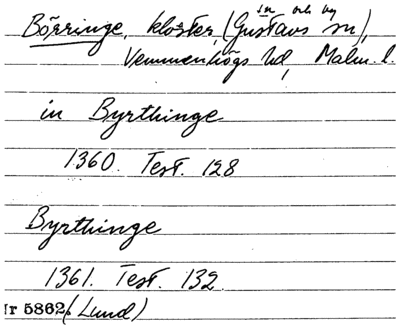 Börringe, kloster, (Gustavs sn),
Vemmenhögs hd, Malm. l.
in Byrthinge
1360. Test. 128
Byrthinge
1361. Test. 132
Nr 5862 (Lund)